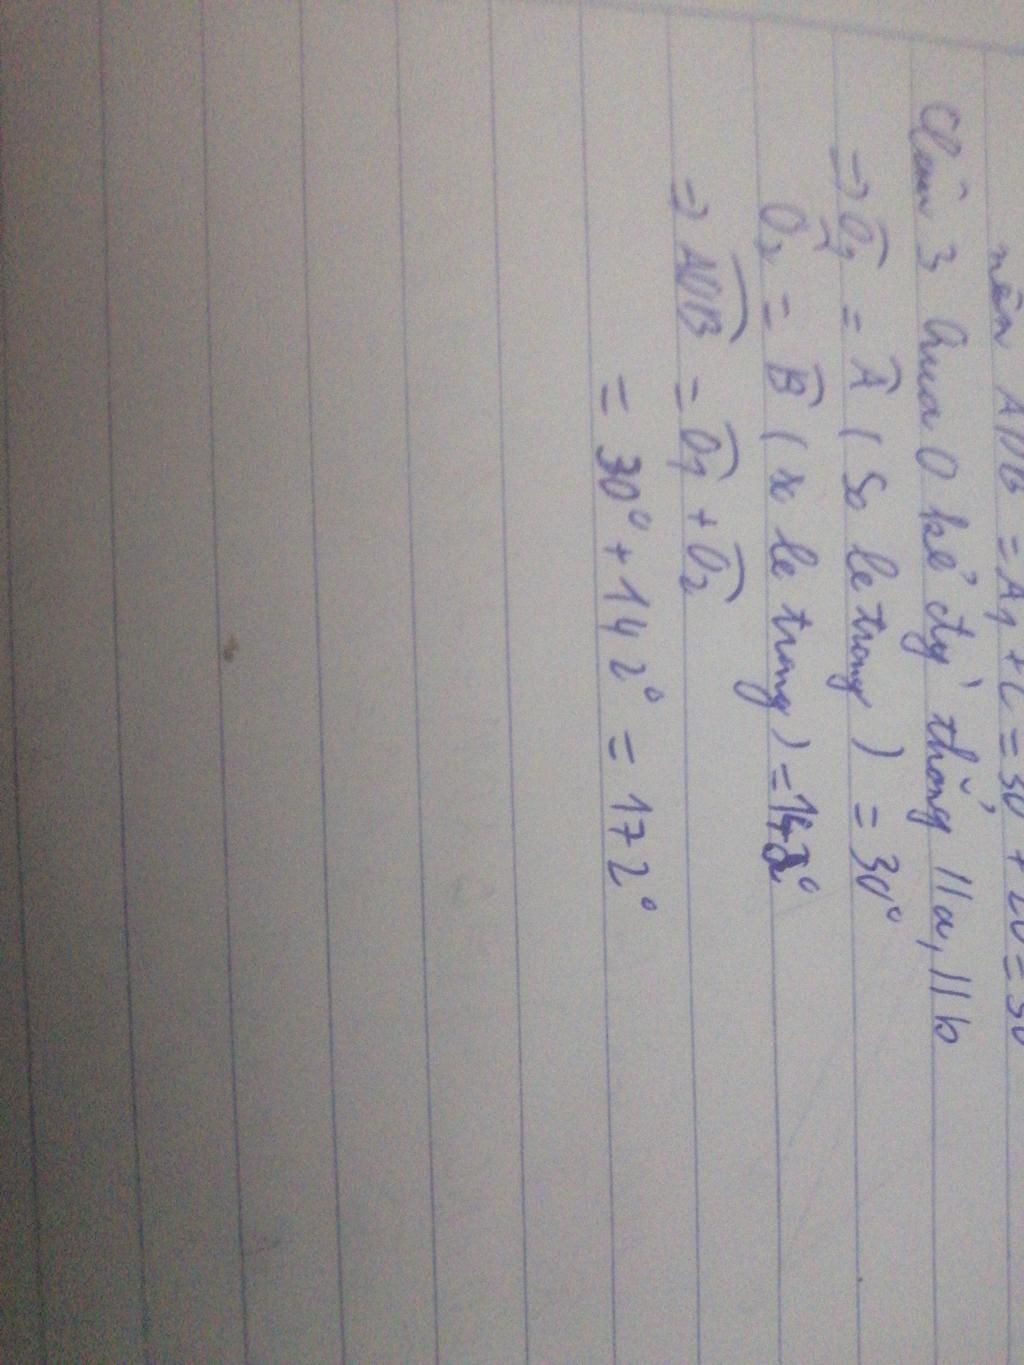 nên AOB = A1 + C = 30 + 20 = 50
Câu 3 Qua O kẻ đg` thẳng // a, // b
=> Ô1 = Â ( so le trong ) = 30°
Ô2 = B̂ ( so le trong ) = 142°
=> AOB = Ô1 + Ô2
= 30° + 142° = 172°